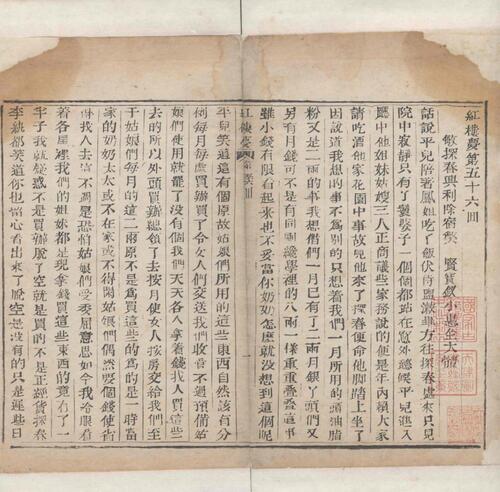 紅樓夢第五十六回
敏探春興利除宿獘 賢寶釵小惠全大體
話說平兒陪著鳳姐吃了飯伏侍盥漱畢方往探春處來只見
院中寂靜只有丫鬟婆子一個個都站在窓外聽候平兒進入
廳中他姐妹姑嫂三人正商議些家務說的便是年內賴大家
請吃酒他家花園中事故見他來了探春便命他脚踏上坐了
因說道我想的事不爲别的只想着我們一月所用的頭油脂
粉又是二兩的事我想偺們一月已有了二兩月銀丫頭們又
另有月錢可不是又同剛纔學裡的八兩一樣重重叠叠這事
雖小錢有限看起來也不妥當你奶奶怎麽就没想到這個呢
紅樓夢 第五十六回 一
平兒笑道這有個原故姑娘們所用的這些東西自然該有分
例每月每處買辦買了令女人們交送我們收管不過預偹姑
娘們使用就罷了没有個我們天天各人拿着錢找人買這些
去的所以外頭買辦總領了去按月使女人按房交給我們至
于姑娘們每月的這二兩原不是爲買這些的爲的是一時當
家的奶奶太太或不在家或不得閑姑娘們偶然要個錢使省
得找人去這不過是恐怕姑娘們受委屈意思如今我冷眼看
着各屋裡我們的姐妹都是現拿錢買這些東西的竟有了一
半子我就疑惑不是買辦脫了空就是買的不是正經貨探春
李紈都笑道你也留心看出來了脫空是没有的只是遲些日